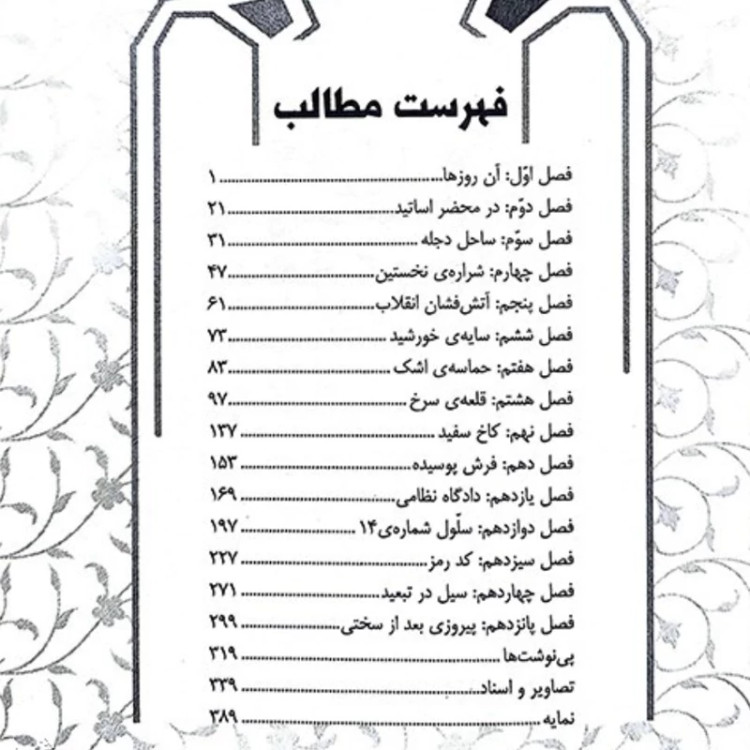 فهرست مطالب
فصل اوّل: آن روزها................................................۱
فصل دوّم: در محضر اساتید.....................................۲۱
فصل سوّم: ساحل دجله ..........................................۳۱
فصل چهارم: شراره‌ی نخستین................................۴۷
فصل پنجم: آتش‌فشان انقلاب................................۶۱
فصل ششم: سایه‌ی خورشید ..................................۷۳
فصل هفتم: حماسه‌ی اشک ...................................۸۳
فصل هشتم: قلعه‌ی سرخ .......................................۹۷
فصل نهم: کاخ سفید ...........................................۱۳۷
فصل دهم: فرش پوسیده.......................................۱۵۳
فصل یازدهم: دادگاه نظامی...................................۱۶۹
فصل دوازدهم: سلّول شماره‌ی۱۴ ..........................۱۹۷
فصل سیزدهم: کد رمز..........................................۲۲۷
فصل چهاردهم: سیل در تبعید...............................۲۷۱
فصل پانزدهم: پیروزی بعد از سختی......................۲۹۹
پی‌نوشت‌ها........................................................۳۱۹
تصاویر و اسناد....................................................۳۳۹
نمایه................................................................۳۸۹